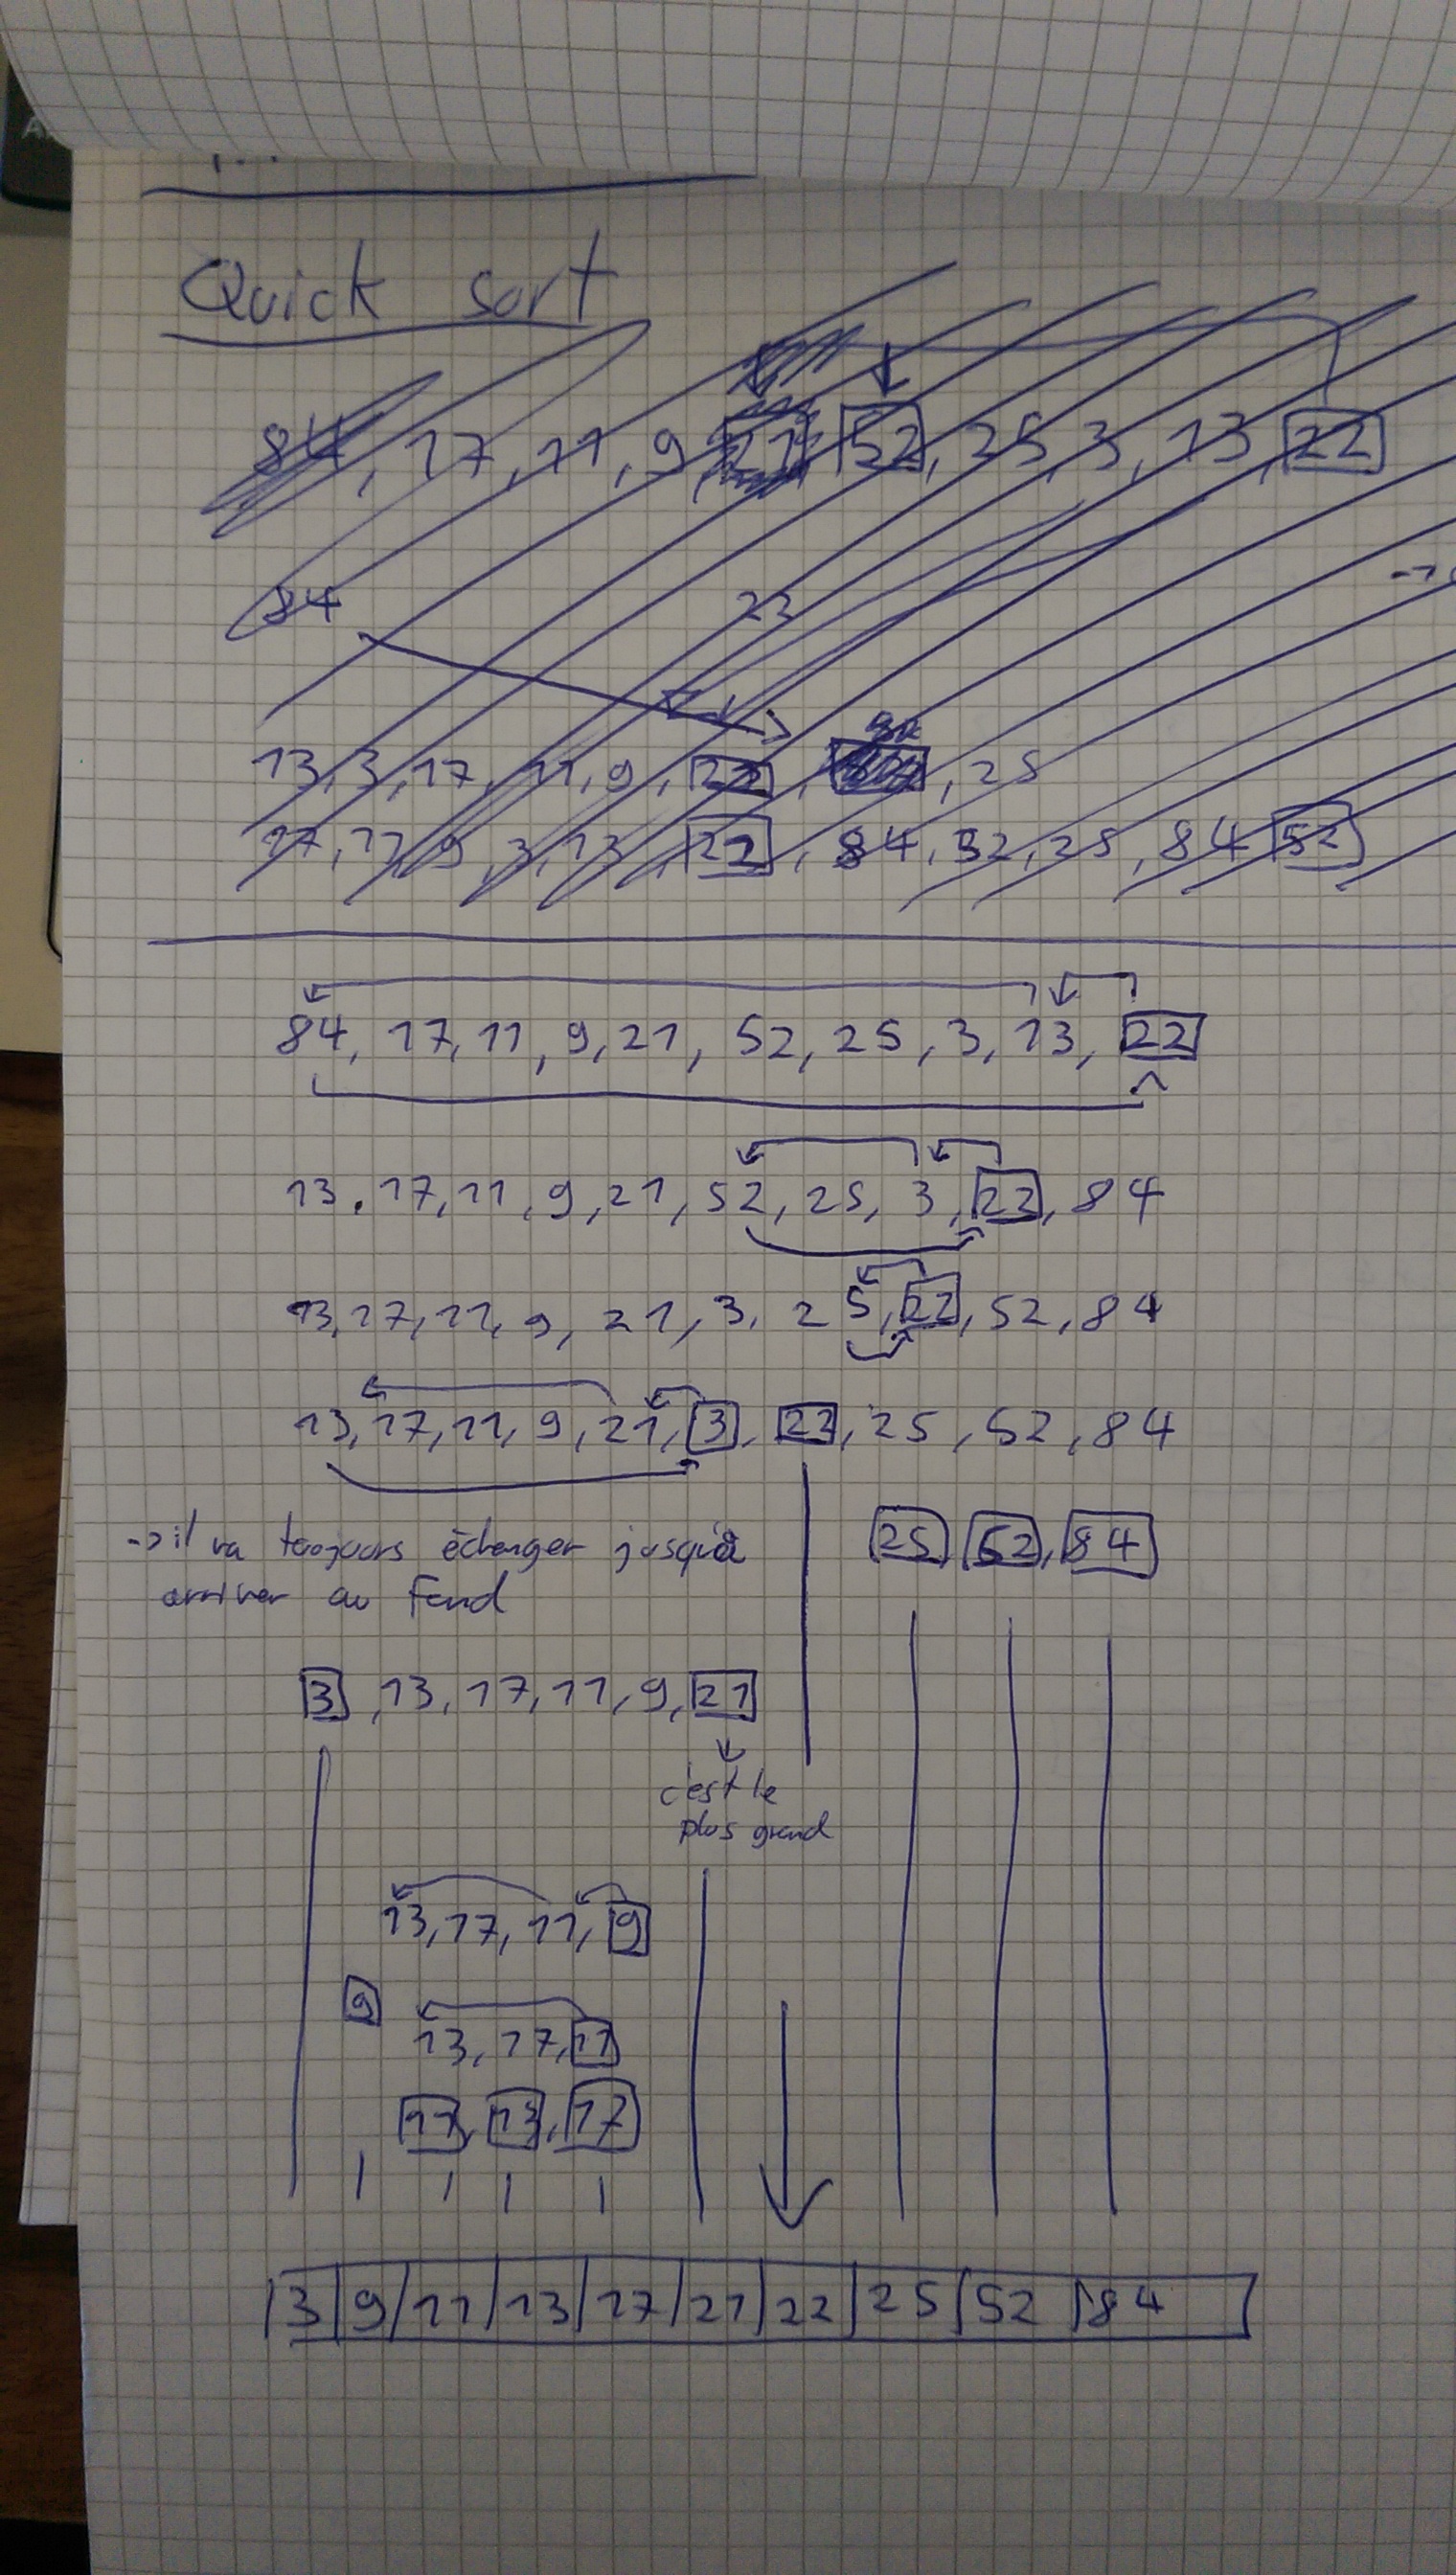 Quick sort
84, 17, 11, 9, 21, 52, 25, 3, 13, 22
84 22
13, 3, 17, 11, 9, 22, , 25
17, 11, 9, 3, 13, 22, 84, 52, 25, 84 52
84, 17, 11, 9, 21, 52, 25, 3, 13, 22
13, 17, 11, 9, 21, 52, 25, 3, 22, 84
13, 17, 11, 9, 21, 3, 25, 22, 52, 84
13, 17, 11, 9, 21, 3, 22, 25, 52, 84
25, 52, 84
-> il va toujours échanger jusqu'à
arriver au fond
3, 13, 17, 11, 9, 21
c'est le
plus grand
13, 17, 11, 9
9
13, 17, 11
11, 13, 17
3 9 11 13 17 21 22 25 52 84